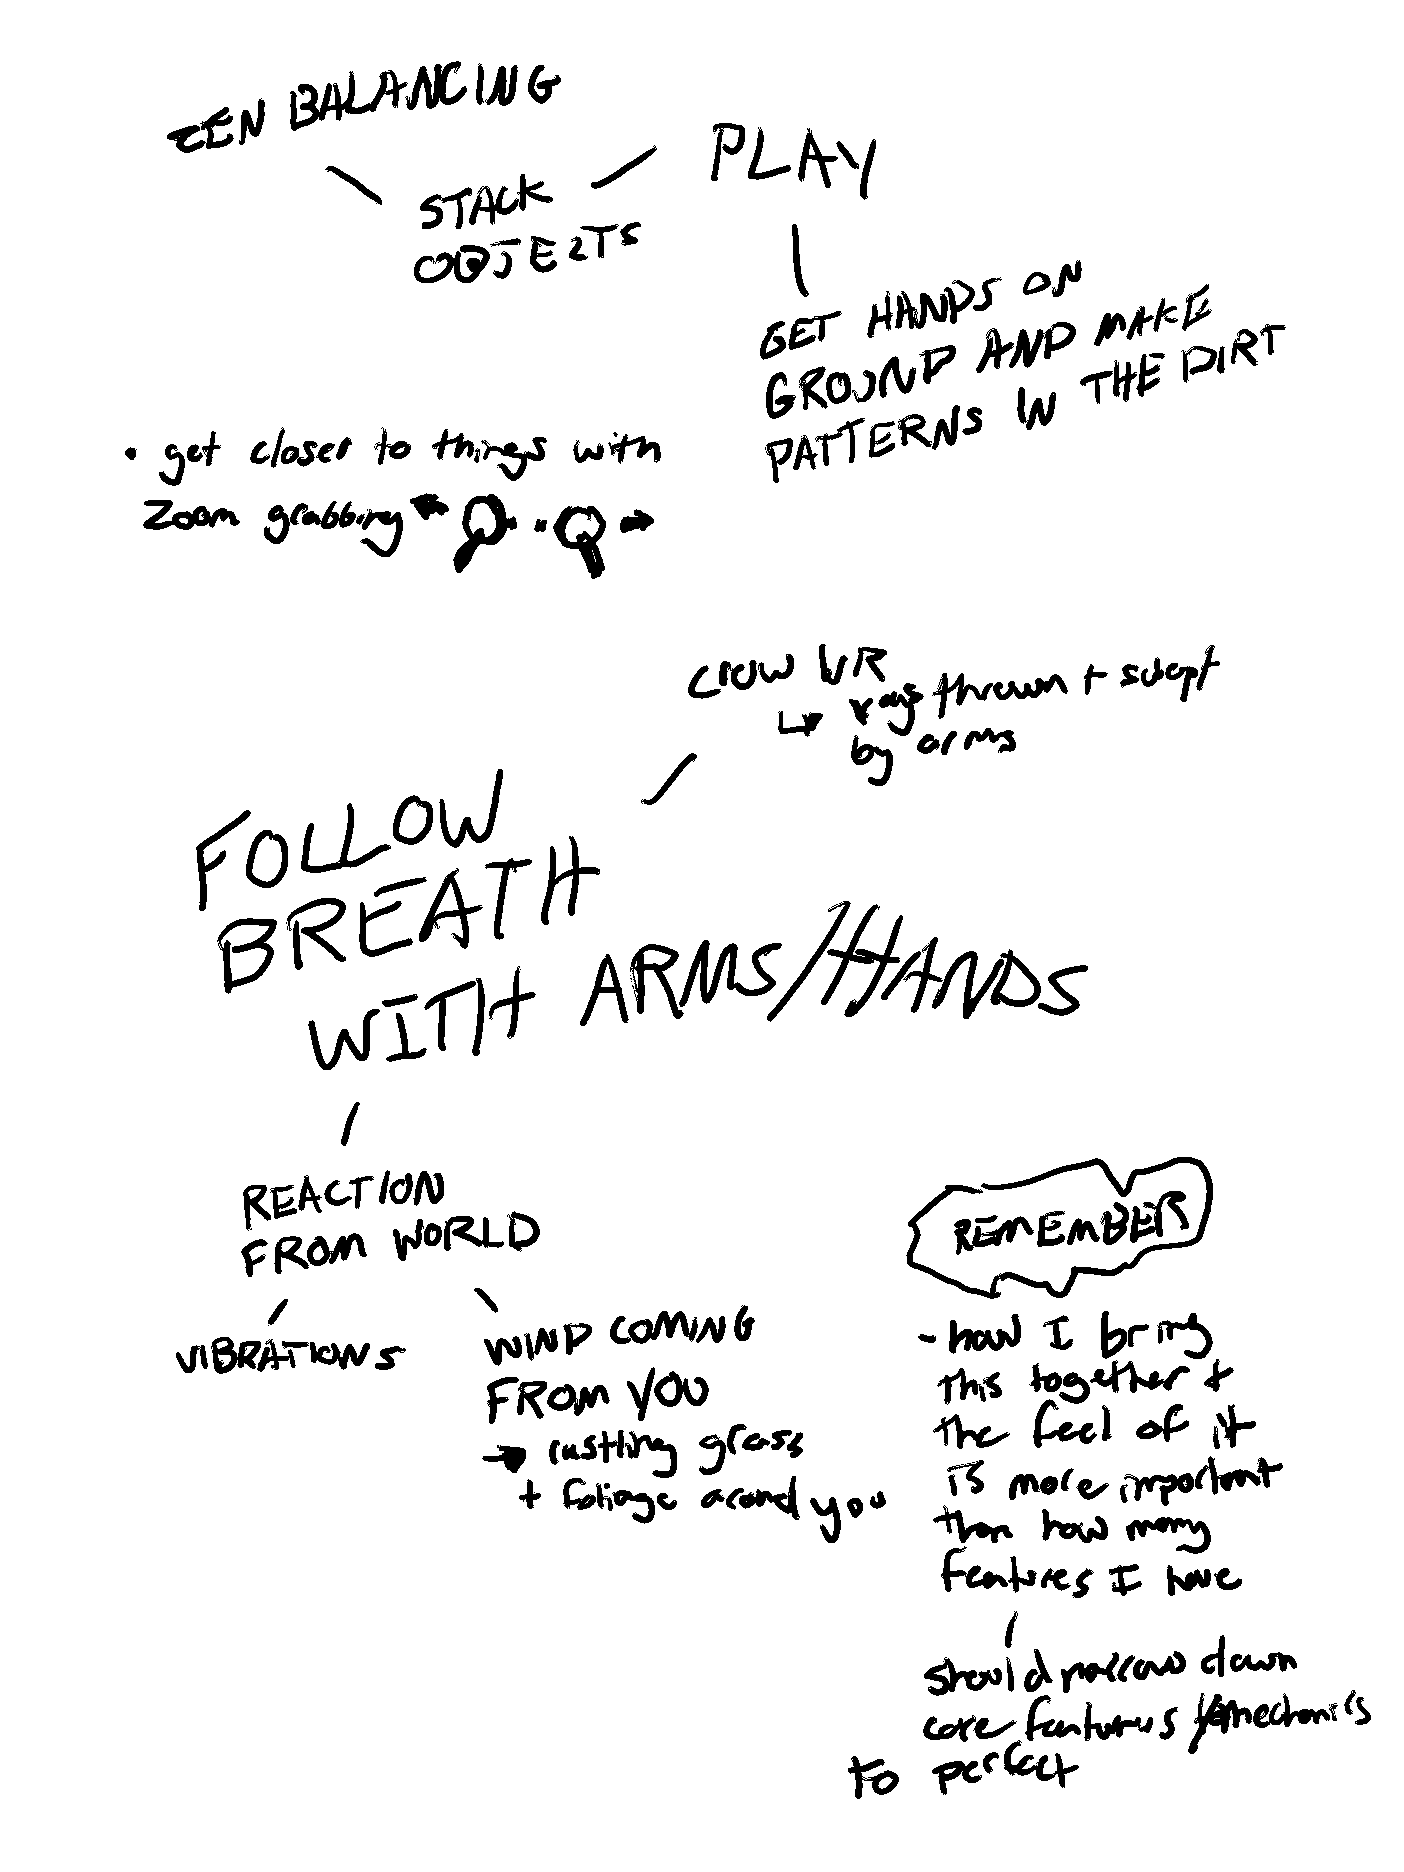 ZEN BALANCING
PLAY
STACK
OBJECTS
GET HANDS ON
GROUND AND MAKE
PATTERNS IN THE DIRT
• get closer to things with
Zoom grabbing
crow VR
↳ rays thrown + swept
by arms
FOLLOW
BREATH
WITH ARMS/HANDS
REACTION
FROM WORLD
VIBRATIONS
WIND COMING
FROM YOU
→ rustling grass
+ foliage around you
REMEMBER
- how I bring
this together +
the feel of it
is more important
than how many
features I have
should narrow down
core features /mechanics
to perfect